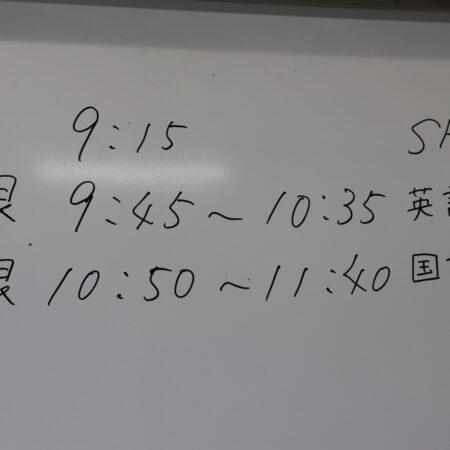 9:15 SH
限 9:45～10:35 英語
限 10:50～11:40 国